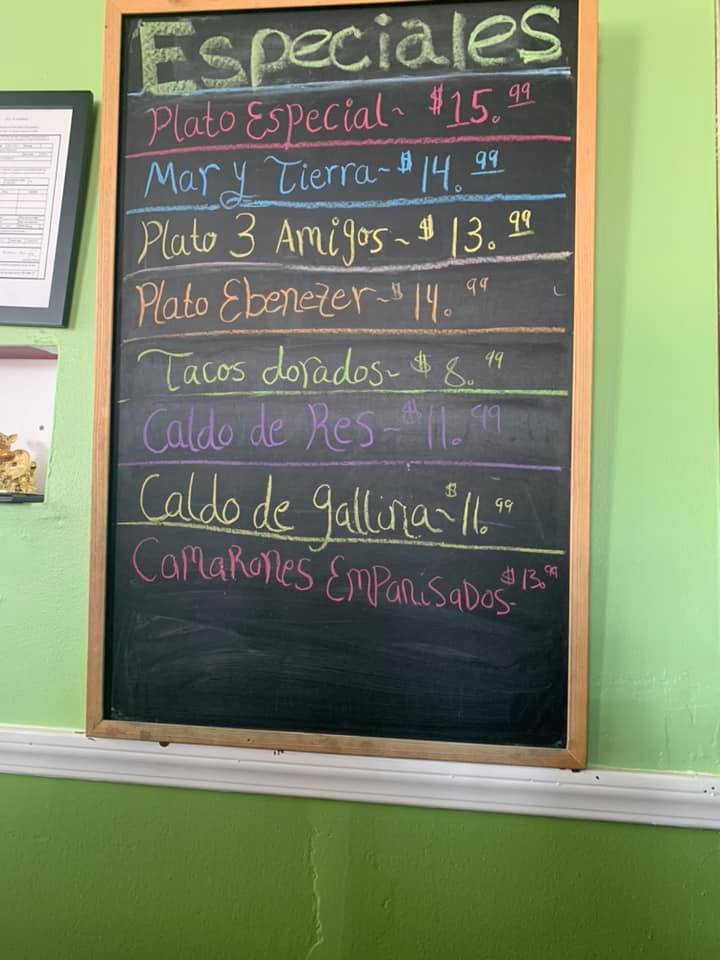 Especiales
Plato Especial ~ $15.99
Mar y Tierra ~ $14.99
Plato 3 Amigos ~ $13.99
Plato Ebenezer ~ $14.99
Tacos dorados ~ $8.99
Caldo de Res ~ $11.99
Caldo de gallina ~ $11.99
Camarones Empanisados - $13.99